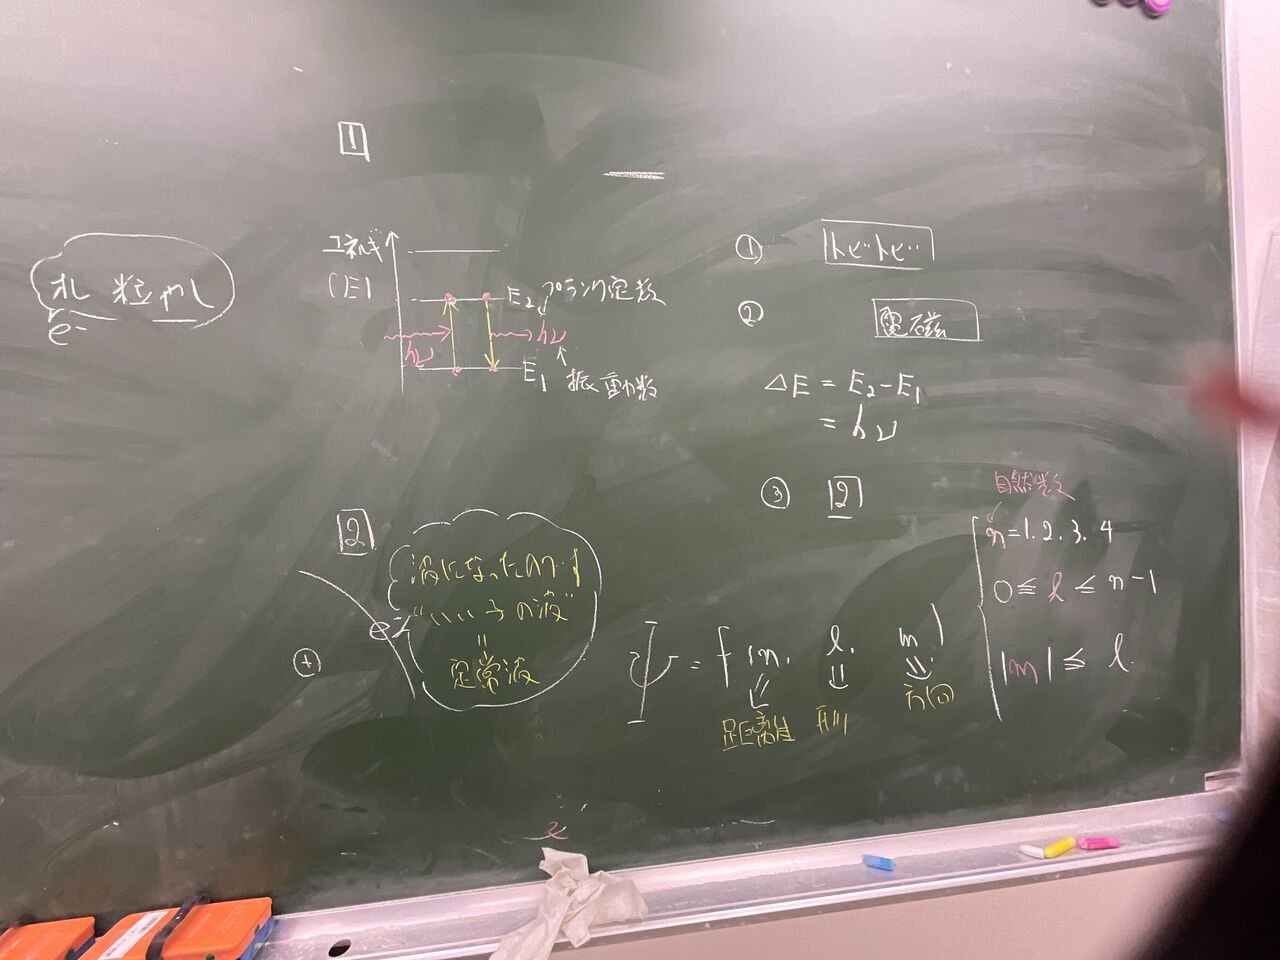 1
エネルギ
(E)
E₂
プランク定数
hν
hν
E₁
振動数
オレ 粒やし
e⁻
①
トビトビ
②
電磁
ΔE = E₂−E₁
= hν
③ 2
自然数
n=1.2.3.4
0≦ l ≦ n−1
|m| ≦ l.
2
波になったので
"いい子の波"
=
定常波
e⁻
+
Ψ = f(n. l. m)
距離
形
方向